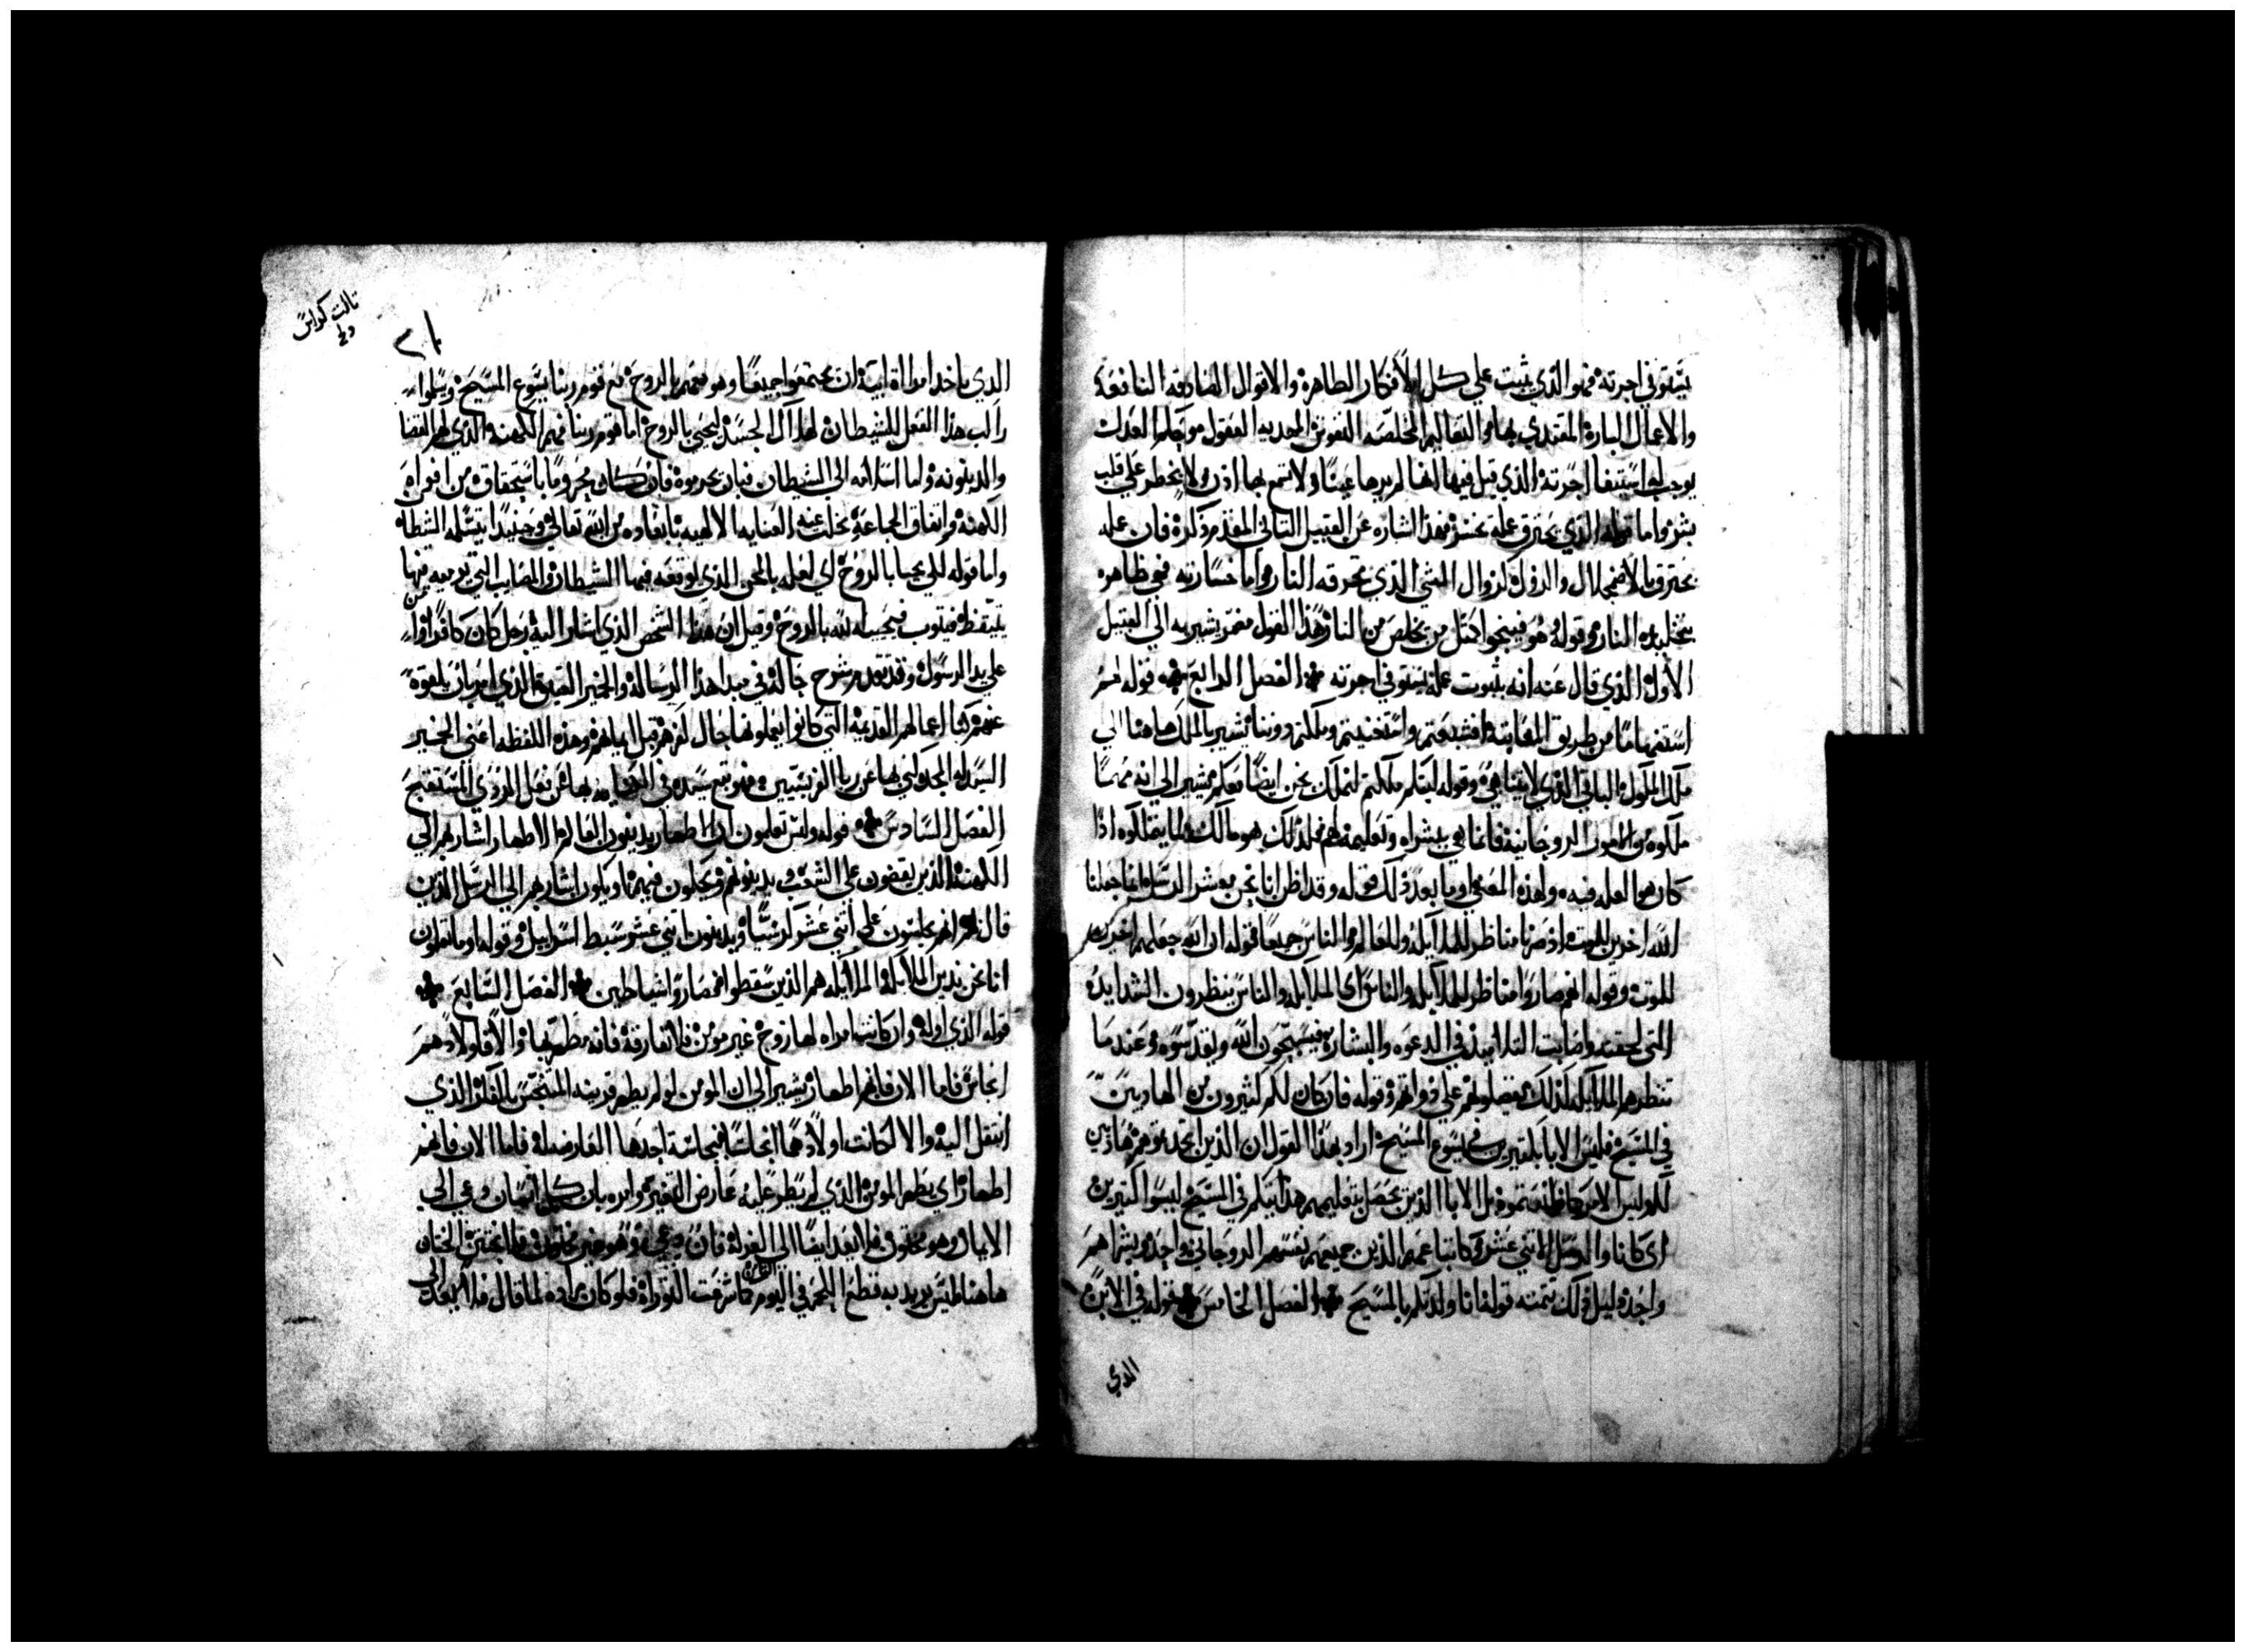 يستوفي اجرته فهو الذي يثبت علي كل الافكار الطاهرة والاقوال الصادقه النافعة
والاعمال البارة المقتدي بها والتعاليم المخلصه النفوس المجديه العقول
يوجب له استيفا اجرته الذي قيل فيها انها لم يرها عينا ولا تسمع بها اذن ولا يخطر علي قلب
بشر واما قوله الذي يحترق عمله يخسر فهذا اشاره عن القبيل الثاني المقدم ذكرة فان عمله
يحترق بالاضمحلال والزوال كزوال الشي الذي تحرقه النار واما خسارته فهي ظاهره
بتخليده النار وقوله هو فينجوا كمثل من يخلص من النار فهذا القول يشير به الي القبيل
الاول الذي قال عنه انه بثبوت عمله يستوفي اجرته الفصل الرابع قوله لهم
استفهاما من طريق المعاتبه افشبعتم واستغنيتم وملكتم دوننا يشير بالملك هاهنا الي
ملك الملكوت الباقي الذي لا يتناهي وقوله ليتكم ملكتم لنملك نحن ايضا معكم يشير الي انه مهما
ملكوه من الامور الروحانية فانما هي ببشراه وتعليمه لهم فلذلك هو مالك لما يملكوه اذا
كان هو العله فيه وهذه المعني وما بعد ذلك قوله وقد اظن انا نحن معشر الرسل انما جعلنا
الله اخرين للموت اذ صرنا مناظر للملايكة وللعالم والناس جميعا قوله ان الله جعلهم اخرين
للموت وقوله انهم صاروا مناظر للملايكه والناس اي الملايكه والناس ينظرون الشدايد
التي لحقته واصابت التلاميذ في الدعوه والبشارة فيسبحون الله ويقدسوه وعند ما
تنظرهم الملايكة كذلك يفضلونهم علي ذواتهم وقوله فان كان لكم كثيرون من الهاديين
في المسيح فليس الابا بكثيرين في يسوع المسيح اراد بهذا القول ان الذين هاديين
لكم ليس الامر كما بل الابا الذين يحصل بتعليمهم هذا بتكلم في المسيح ليسوا كثيرين
اي كانا والرسل الاثني عشر كانت اعمهم الذين جميعهم نفسهم الروحاني واحدة وبشراهم
واحدة دليل ذلك تتمته قوله فانا ولدتكم بالمسيح الفصل الخامس قوله في الابن
الذي
ثالث كراس
٢١
الذي ياخد امراة ابية ان يجتمعوا جميعا وهو معهم بالروح مع قوم ربنا يسوع المسيح ويسلموا
راكب هذا الفعل للشيطان لهلاك الجسد ليحيي بالروح اما قوم ربنا فهم الكهنة الذي لهم القضا
والدينونه واما اسلامه الي الشيطان فبان يحرموه فان كان محروما باستحقاق من افواه
الكهنة واتفاق الجماعة تخلت عنه العنايه الالهيه بابعاده من الله تعالي وحينيدا يتسلمه الشيطان
واما قوله لكي يحيا بالروح اي لعله بالمحن الذي يوقعه فيها الشيطان والمصايب التي ترميه فيها
يتيقظ فيتوب فيحيه الله بالروح وقيل ان هذا الشخص الذي اشار اليه رجل كان كافرا
علي يد الرسول وقد تقدم شرح حاله في مبدا هذا الرسالة والخمير العتيق الذي امر بان يلقوة
عنهم كنا اعمالهم القديمه التي كانوا يعملونها حال كفرهم قبل ايمانهم وهذه اللفظه اعني الخمير
السيد له المجد كني بها عن ريا الفريسيين
الفصل السادس قوله ولستم تعلمون ان الاطهار يدينون العالم الاطهار اشار بهم الي
الكهنة الذين يقضون علي الشعب ويدينونهم ويحكمون فيهم اشار بهم الي الرسل الذين
قال لهم انهم يجلسون علي اثني عشر كرسيا ويدينون اثني عشر سبط اسراييل وقوله او ما تعلمون
انا نحن ندين الملايكة الملايكه هم الذين سقطوا فصاروا شياطين الفصل السابع
قوله الذي اوله وان كانت امراه لها زوج غير مومن فلا تفارقه فانه مطهر بها والا فاولادهم
انجاس فاما الان فانهم اطهار يشير الي ان المومن لو لم يطهر قرينه المتنجس بالكفر الذي
انتقل اليه والا لكانت اولادهما انجاسا بنجاسة احدهما العارضه له فاما الان فانهم
اطهار اي بطهر المومن الذي لم يطر عليه عارض التغير وامره بان كل انسان دعي الي
الايمان وهو مختون فلا يعد ايضا الي الغرلة فان دعي وهو غير مختون فلا يختتن الختان
هاهنا ليس يريد به قطع اللحم في اليوم الثامن كما شرعت التوراة فلو كان مراده لما قال فلا يعد الي